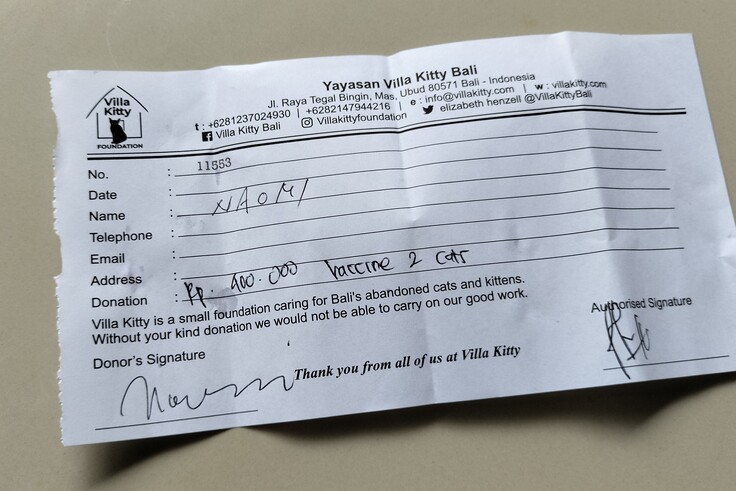 Villa
Kitty
FOUNDATION
Yayasan Villa Kitty Bali
Jl. Raya Tegal Bingin, Mas, Ubud 80571 Bali - Indonesia
t : +6281237024930 | +6282147944216 | e : info@villakitty.com | w : villakitty.com
Villa Kitty Bali Villakittyfoundation elizabeth henzell @VillaKittyBali
No. : 11553
Date :
Name : NAOMI
Telephone :
Email :
Address :
Donation : Rp. 400.000 Vaccine 2 cats
Villa Kitty is a small foundation caring for Bali's abandoned cats and kittens.
Without your kind donation we would not be able to carry on our good work.
Donor's Signature
Authorised Signature
Thank you from all of us at Villa Kitty